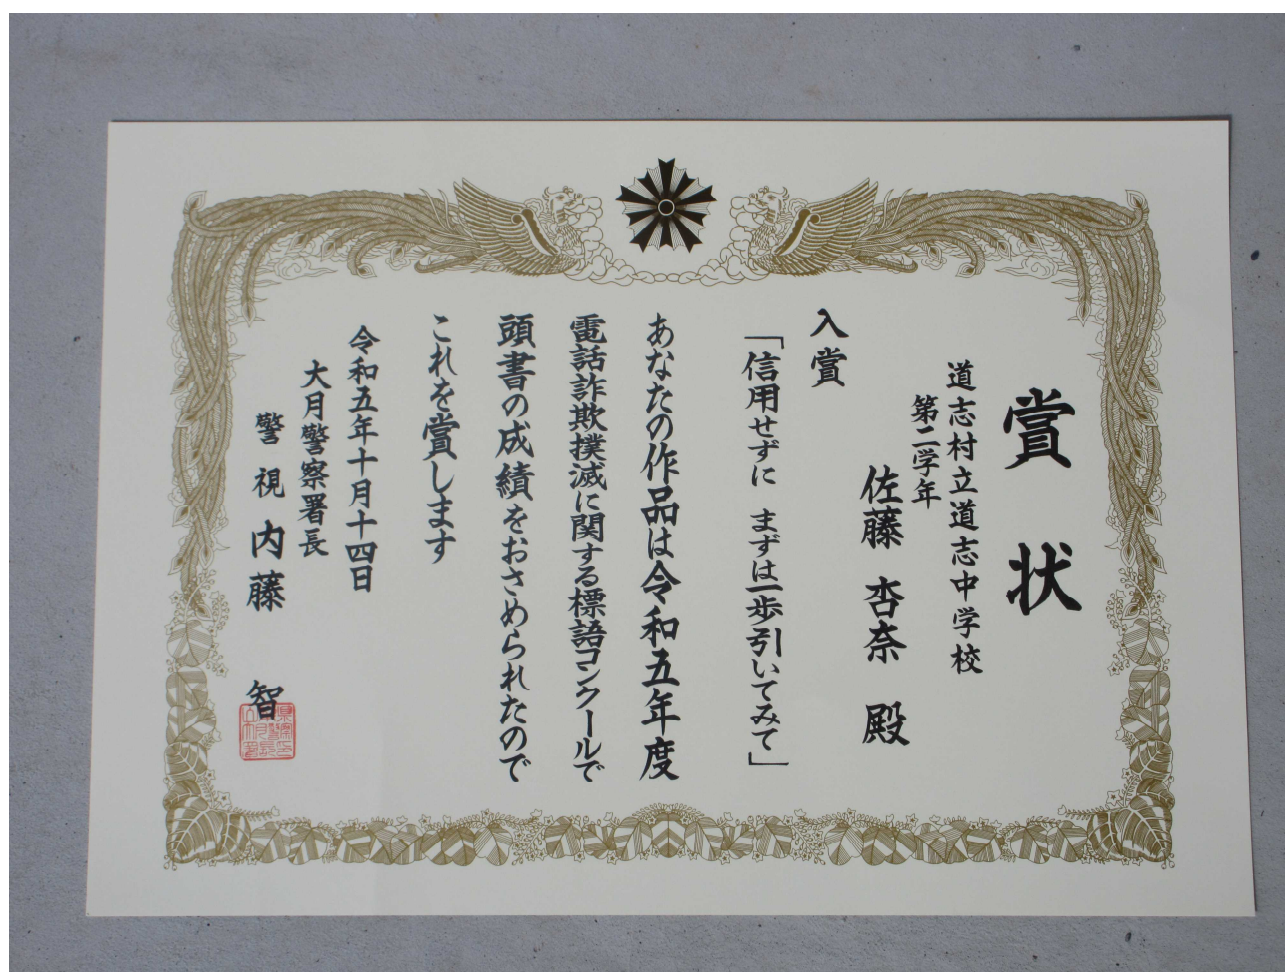 賞状
道志村立道志中学校
第二学年
佐藤 杏奈 殿
入賞
「信用せずに まずは一歩引いてみて」
あなたの作品は令和五年度
電話詐欺撲滅に関する標語コンクールで
頭書の成績をおさめられたので
これを賞します
令和五年十月十四日
大月警察署長
警視 内藤 智